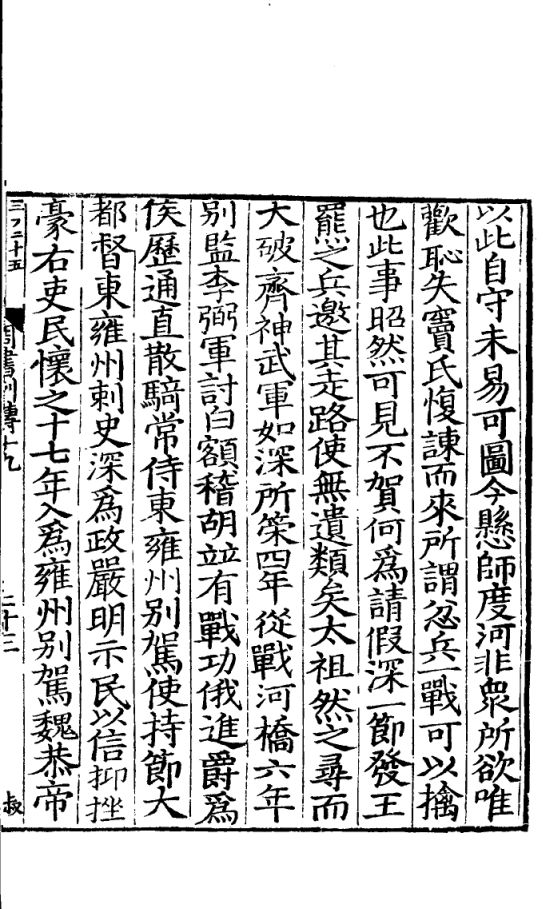 以此自守未易可圖今懸師度河非衆所欲唯
歡恥失竇氏愎諫而來所謂忿兵一戰可以擒
也此事昭然可見不賀何爲請假深一節發王
羆之兵邀其走路使無遺類矣太祖然之尋而
大破齊神武軍如深所策四年從戰河橋六年
别監李弼軍討白額稽胡竝有戰功俄進爵爲
侯歷通直散騎常侍東雍州别駕使持節大
都督東雍州刺史深爲政嚴明示民以信抑挫
豪右吏民懷之十七年入爲雍州别駕魏恭帝
周書列傳十九
二十三